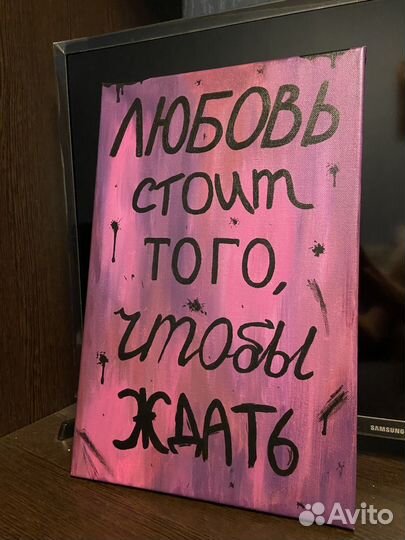 ЛЮБОВЬ
стоит
ТОГО,
чтобы
ЖДАТЬ
SAMSUNG
Avito